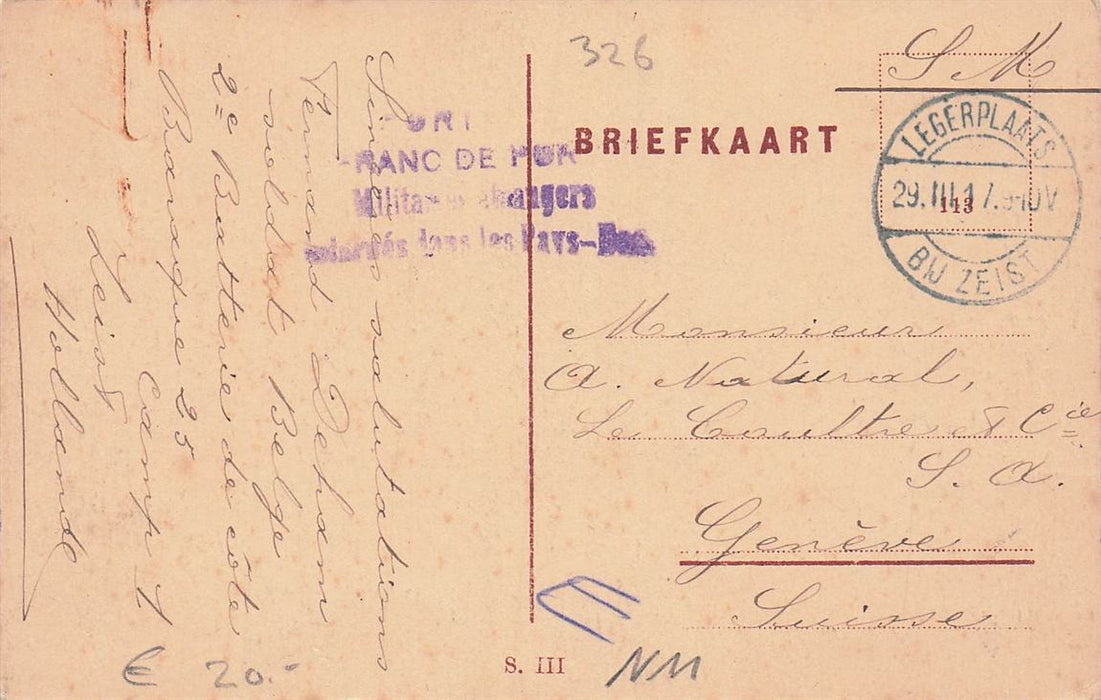 326
S M
BRIEFKAART
LEGERPLAATS
29.III.17.9-10V
BIJ ZEIST
113
PORT
FRANC DE PORT
Militaires étrangers
internés dans les Pays-Bas.
Sincères salutations
Fernand Deham
soldat Belge
2=e Batterie de côte
Baraque 25
Camp 1
Zeist
Hollande
Monsieur
A. Natural,
Le Coultre & Cie
S. A.
Genève
Suisse
S. III
NM
€ 20.-